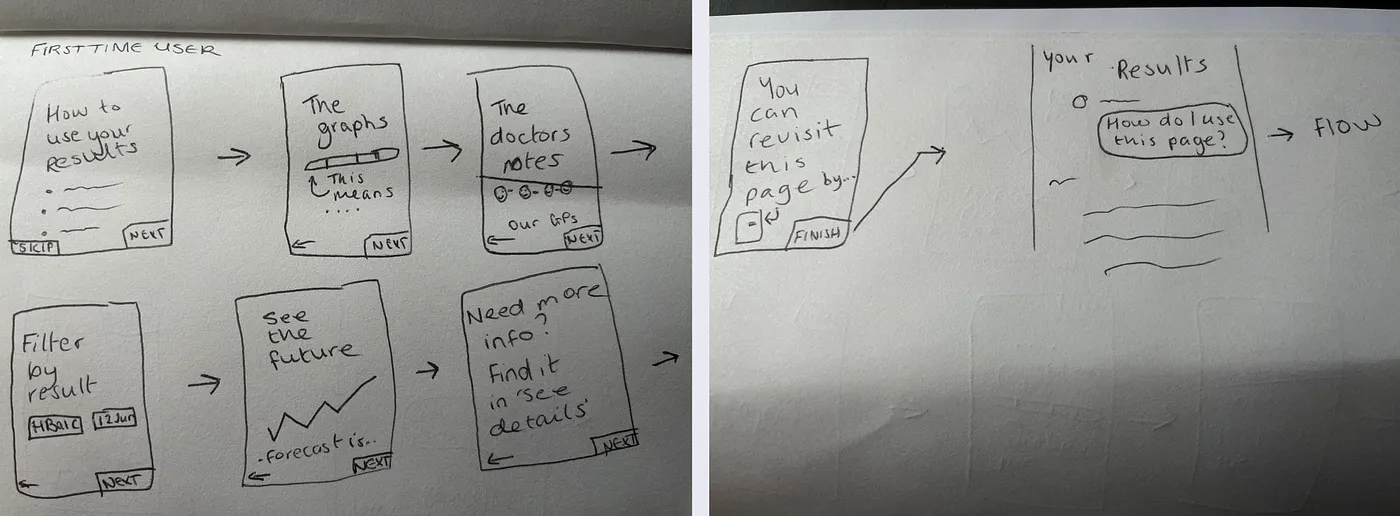 FIRST TIME USER
How to
use your
Results
SKIP
NEXT
The
graphs
This
means
....
NEXT
The
doctors
notes
our GPs
NEXT
Filter
by
result
HBa1C
12 Jun
NEXT
See
the
future
forecast is...
NEXT
Need more
info?
Find it
in 'see
details'
NEXT
You
can
revisit
this
page by...
FINISH
your Results
How do I use
this page?
FLOW